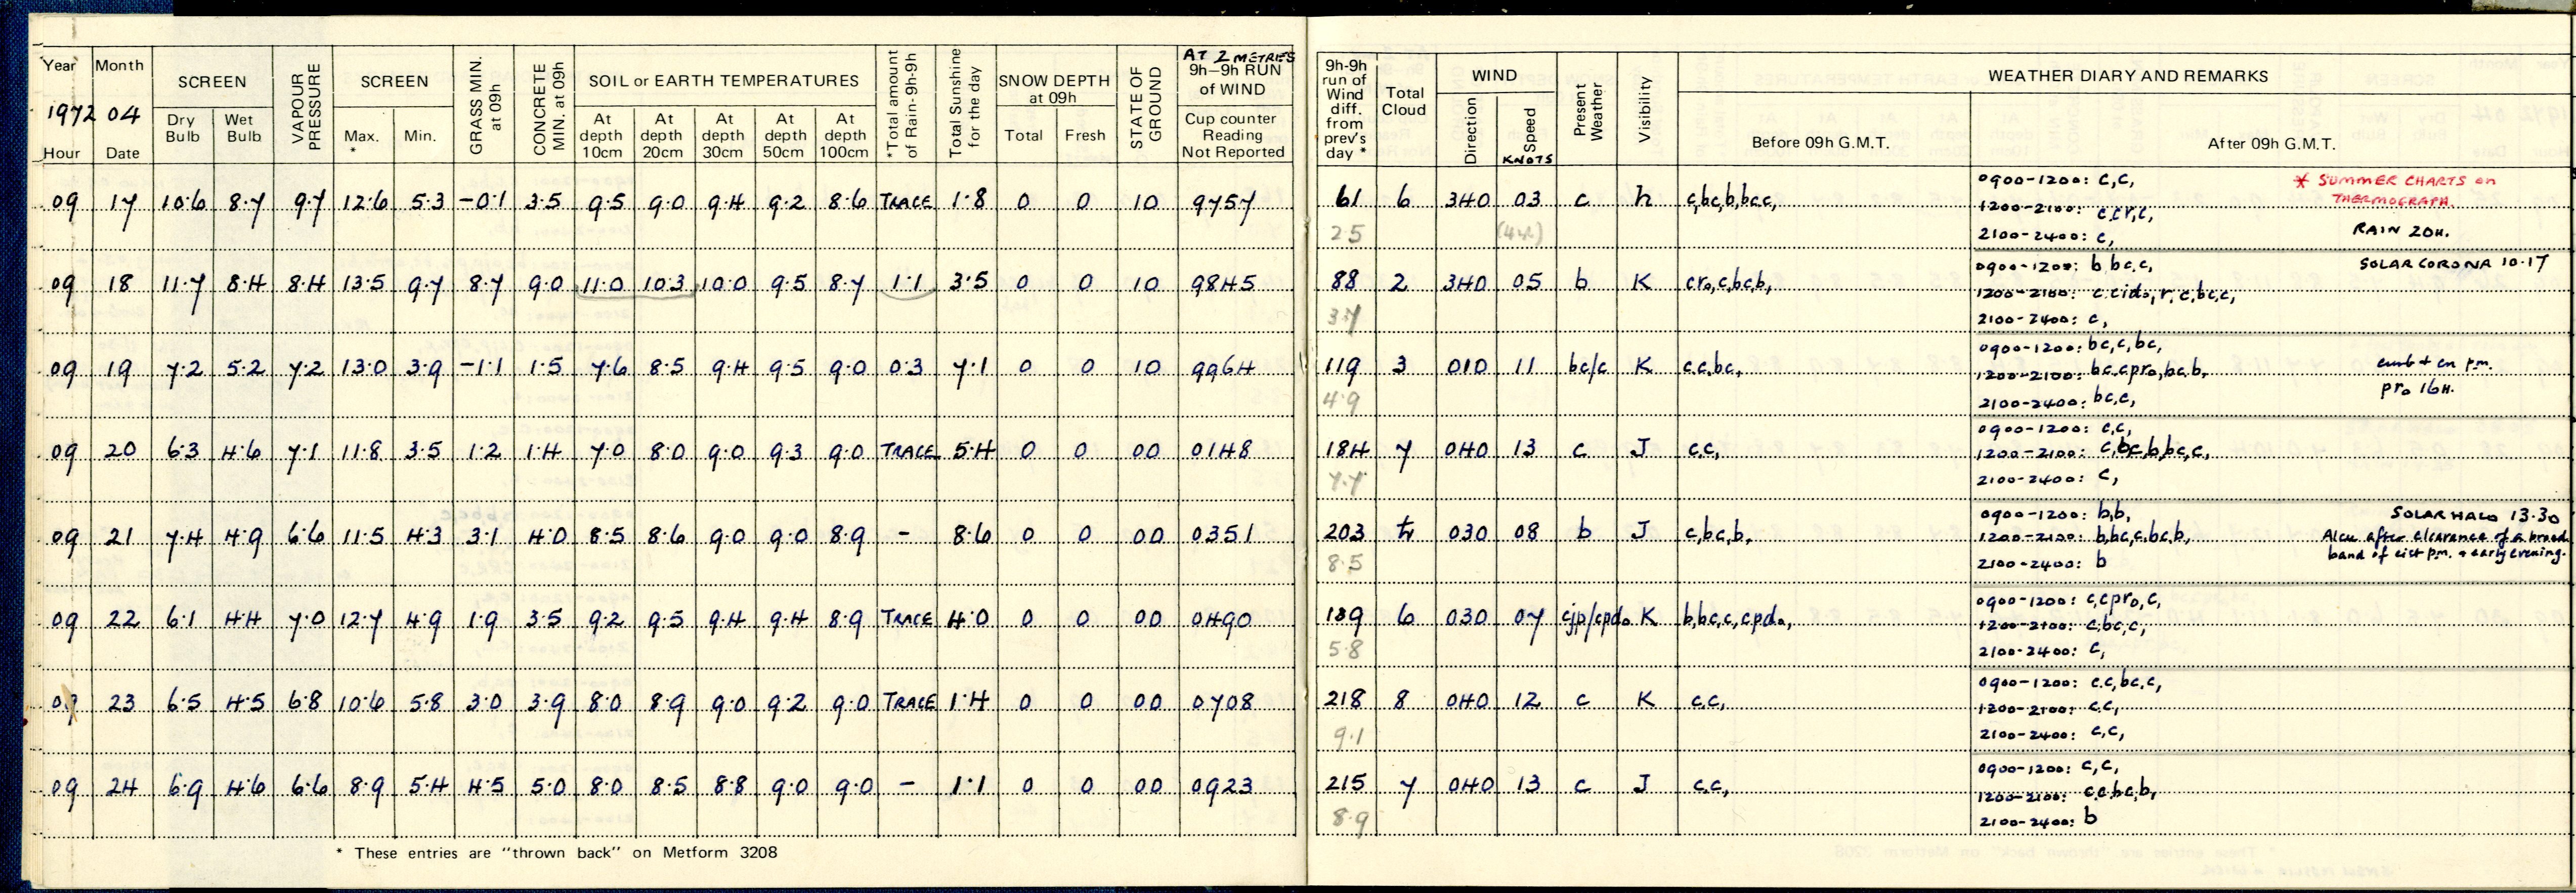 Year Month SCREEN VAPOUR PRESSURE SCREEN GRASS MIN. at 09h CONCRETE MIN. at 09h SOIL or EARTH TEMPERATURES *Total amount of Rain-9h-9h Total Sunshine for the day SNOW DEPTH at 09h STATE OF GROUND AT 2 METRES 9h-9h RUN of WIND
1972 04 Dry Bulb Wet Bulb Max. * Min. At depth 10cm At depth 20cm At depth 30cm At depth 50cm At depth 100cm Total Fresh Cup counter Reading Not Reported
Hour Date
09 17 10.6 8.7 9.7 12.6 5.3 -0.1 3.5 9.5 9.0 9.4 9.2 8.6 TRACE 1.8 0 0 10 9757
09 18 11.7 8.4 8.4 13.5 9.7 8.7 9.0 11.0 10.3 10.0 9.5 8.7 1.1 3.5 0 0 10 9845
09 19 7.2 5.2 7.2 13.0 3.9 -1.1 1.5 7.6 8.5 9.4 9.5 9.0 0.3 7.1 0 0 10 9964
09 20 6.3 4.6 7.1 11.8 3.5 1.2 1.4 7.0 8.0 9.0 9.3 9.0 TRACE 5.4 0 0 00 0148
09 21 7.4 4.9 6.6 11.5 4.3 3.1 4.0 8.5 8.6 9.0 9.0 8.9 - 8.6 0 0 00 0351
09 22 6.1 4.4 7.0 12.7 4.9 1.9 3.5 9.2 9.5 9.4 9.4 8.9 TRACE 4.0 0 0 00 0490
09 23 6.5 4.5 6.8 10.6 5.8 3.0 3.9 8.0 8.9 9.0 9.2 9.0 TRACE 1.4 0 0 00 0708
09 24 6.9 4.6 6.6 8.9 5.4 4.5 5.0 8.0 8.5 8.8 9.0 9.0 - 1.1 0 0 00 0923
* These entries are "thrown back" on Metform 3208
9h-9h run of Wind diff. from prev's day * Total Cloud WIND Present Weather Visibility WEATHER DIARY AND REMARKS
Direction Speed KNOTS Before 09h G.M.T. After 09h G.M.T.
61 6 340 03 c h c,bc,b,bc,c,
2.5
0900-1200: c,c, * SUMMER CHARTS on
1200-2100: c,c,r,c, THERMOGRAPH.
2100-2400: c, RAIN 20H.
88 2 340 05 b K cr₀,c,bc,b,
3.7
0900-1200: b,bc,c, SOLAR CORONA 10.17
1200-2100: c,cid₀,r,c,bc,c,
2100-2400: c,
119 3 010 11 bc/c K c,c,bc,
4.9
0900-1200: bc,c,bc,
1200-2100: bc,cpr₀,bc,b,
pr₀ 16H.
2100-2400: bc,c,
184 7 040 13 c J c,c,
7.7
0900-1200: c,c,
1200-2100: c,bc,b,bc,c,
2100-2400: c,
203 030 08 b J c,bc,b,
8.5
0900-1200: b,b, SOLAR HALO 13.30
1200-2100: b,bc,c,bc,b, Also after clearance of a broad
2100-2400: b band of cist p.m. + early evening.
139 6 030 07 cjp/cpd₀ K b,bc,c,cpd₀,
5.8
0900-1200: c,cpr₀,c,
1200-2100: c,bc,c,
2100-2400: c,
218 8 040 12 c K c,c,
9.1
0900-1200: c,c,bc,c,
1200-2100: c,c,
2100-2400: c,c,
215 7 040 13 c J c,c,
8.9
0900-1200: c,c,
1200-2100: c,c,bc,b,
2100-2400: b